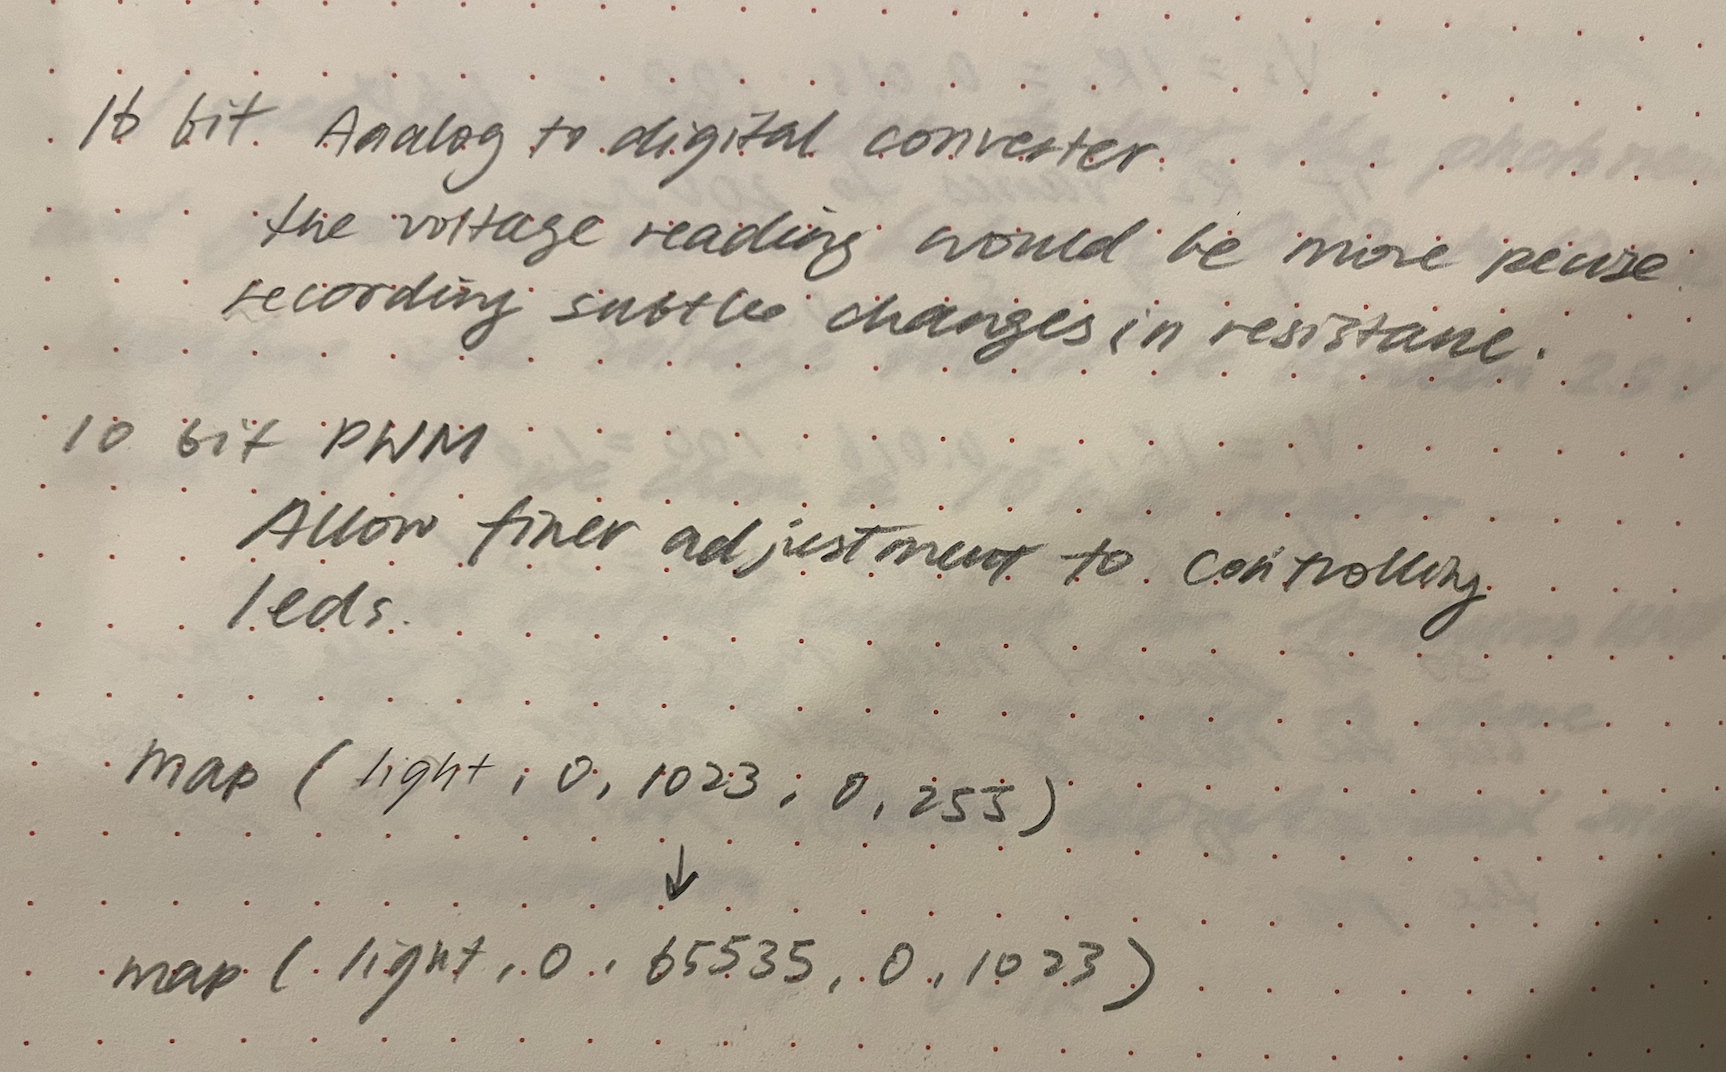 16 bit Analog to digital converter.
the voltage reading would be more pecise
recording subtle changes in resistane.
10 bit PWM
Allow finer adjustment to controlling
leds.
map ( light, 0, 1023, 0, 255)
↓
map ( light, 0, 65535, 0, 1023)